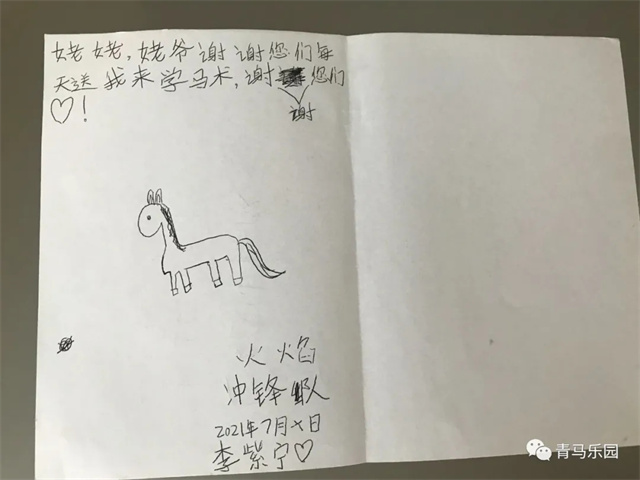 姥姥,姥爷谢谢您们每
天送我来学马术,谢谢您们
♡!
火焰
冲锋队
2021年7月十日
李紫宁♡
青马乐园